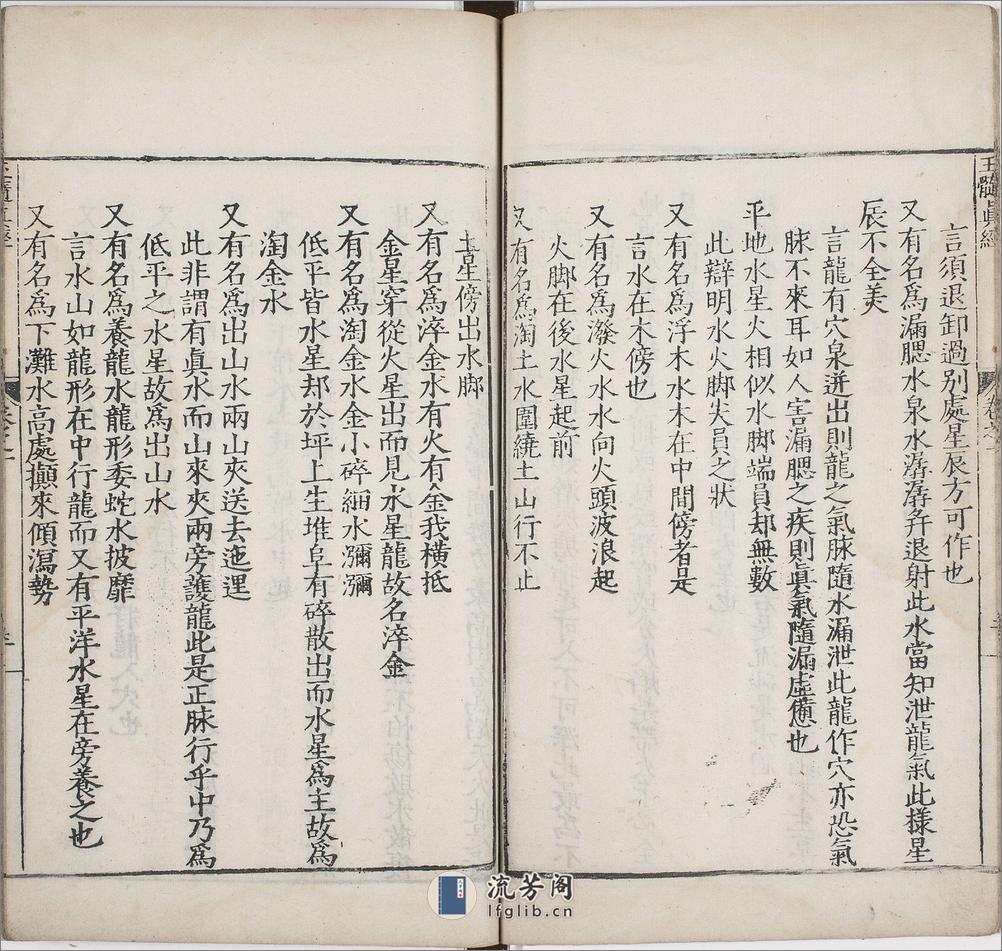 玉髓眞經
言須退卸過别處星辰方可作也
又有名爲漏腮水泉水潺潺弁退射此水當知泄龍氣此樣星
辰不全美
言龍有穴泉迸出則龍之氣脉隨水漏泄此龍作穴亦恐氣
脉不來耳如人害漏腮之疾則眞氣隨漏虚憊也
平地水星火相似水脚端員却無數
此辯明水火脚失員之狀
又有名爲浮木水木在中間傍者是
言水在木傍也
又有名爲潑火水水向火頭波浪起
火脚在後水星起前
又有名爲淘土水圍繞土山行不止
土星傍出水脚
又有名爲淬金水有火有金我橫抵
金星穿從火星出而見水星龍故名淬金
又有名爲淘金水金小碎細水瀰瀰
低平皆水星却於坪上生堆阜有碎散出而水星爲主故爲
淘金水
又有名爲出山水兩山夾送去迤逞
此非謂有眞水而山來夾兩旁護龍此是正脉行乎中乃爲
低平之水星故爲出山水
又有名爲養龍水龍形委蛇水披靡
言水山如龍形在中行龍而又有平洋水星在旁養之也
又有名爲下灘水高處攧來傾瀉勢
流芳阁
lfglib.cn